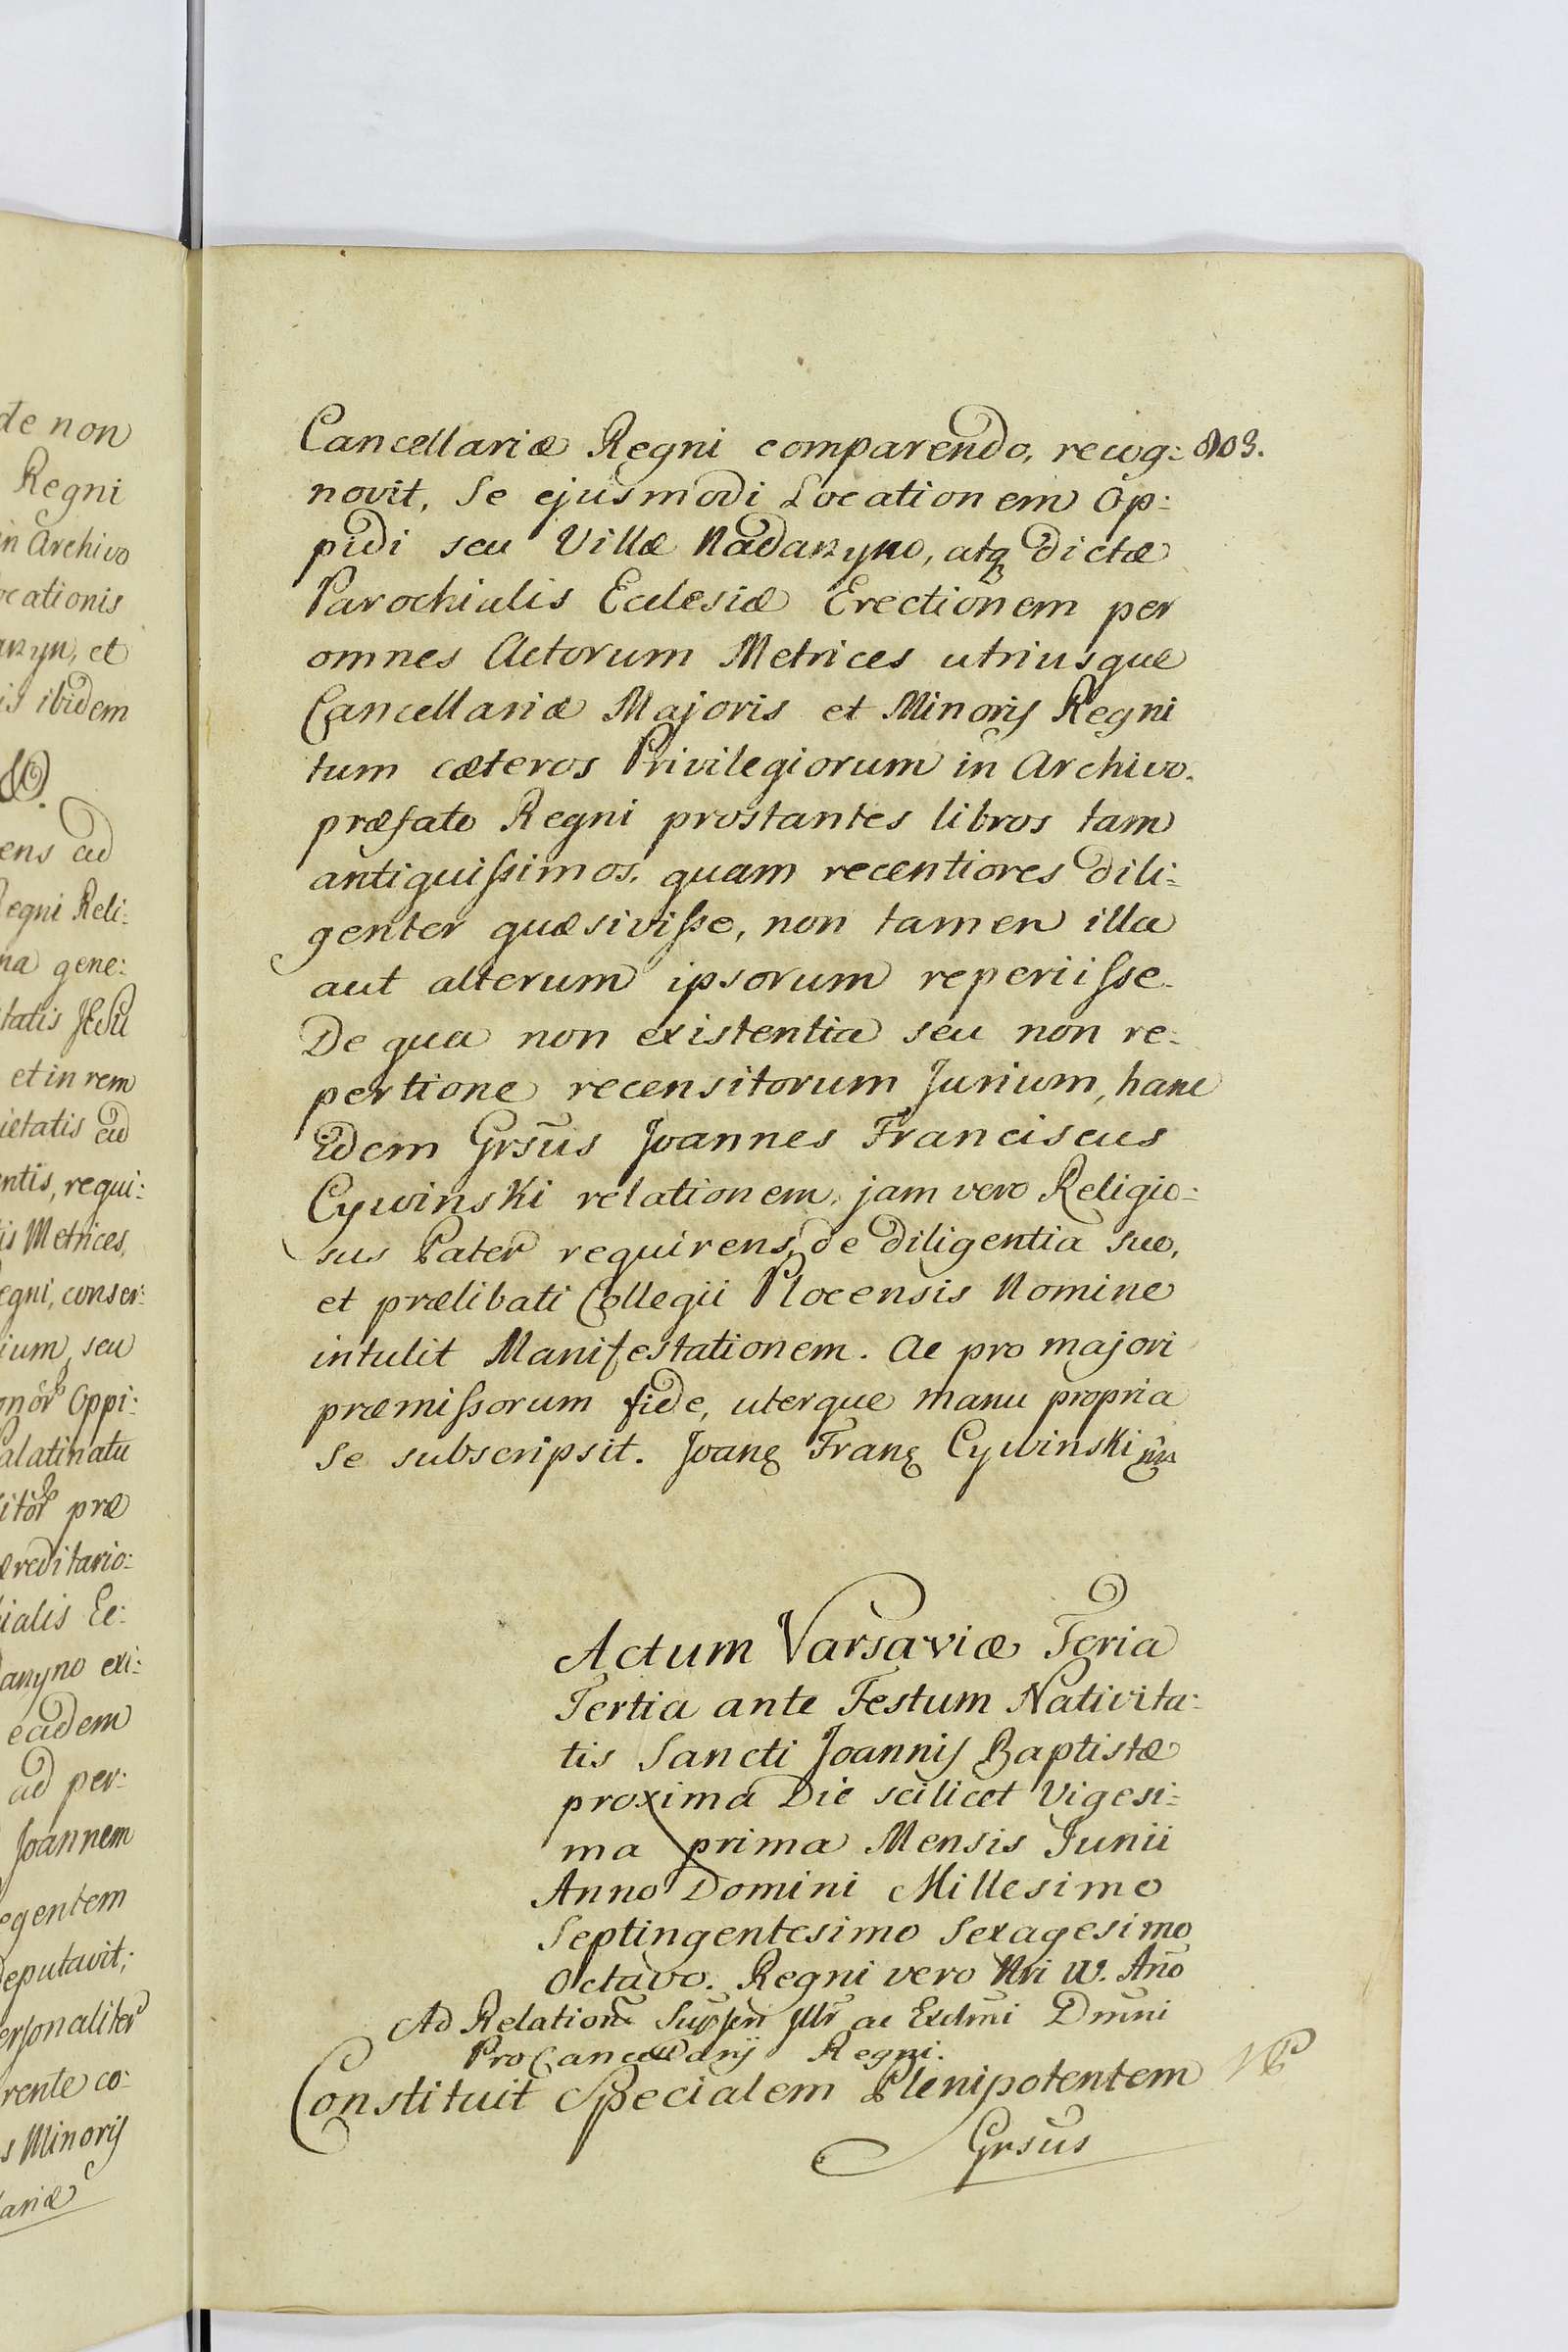 de non
Regni
in Archivo
ocationis
anzyn, et
is ibidem
ens ad
Regni Reli:
na gene:
tatis JESU
et in rem
ietatis ad
entis, requi:
is Metrices,
egni, conser:
ium, seu
Oppi:
alatinatu
præ
æreditario:
ialis Ec:
anyno exi:
eadem
ad per:
Joannem
egentem
Deputavit;
ersonaliter
rente co:
s Minoris
ariæ
Cancellariæ Regni comparendo, recog: 803.
novit, Se ejusmodi Locationem Op:
pidi seu Villæ Nadanyno, atq dictæ
Parochialis Ecclesiæ Erectionem per
omnes Actorum Metrices utriusque
Cancellariæ Majoris et Minoris Regni
tum cæteros Privilegiorum in Archivo
præfato Regni prostantes libros tam
antiquissimos, quam recentiores dili:
genter quæsivisse, non tamen illa
aut alterum ipsorum reperiisse.
De qua non existentia seu non re:
pertione recensitorum Jurium, hanc
Idem Grsūs Joannes Franciscus
Cywinski relationem, jam vero Religio:
sus Pater requirens, de diligentia sua,
et prælibati Collegii Plocensis Nomine
intulit Manifestationem. Ac pro majori
præmissorum fide, uterque manu propria
Se subscripsit. Joanę Franę Cywinski
Actum Varsaviæ Feria
Tertia ante Festum Nativita:
tis Sancti Joannis Baptistæ
proxima Die scilicet Vigesi:
ma prima Mensis Junii
Anno Domini Millesimo
Septingentesimo Sexagesimo
Octavo. Regni vero Nri IV. Ano
Ad Relation Illr ac Exclmi Dmni
ProCancellarij Regni.
Constituit Specialem Plenipotentem
Grsūs